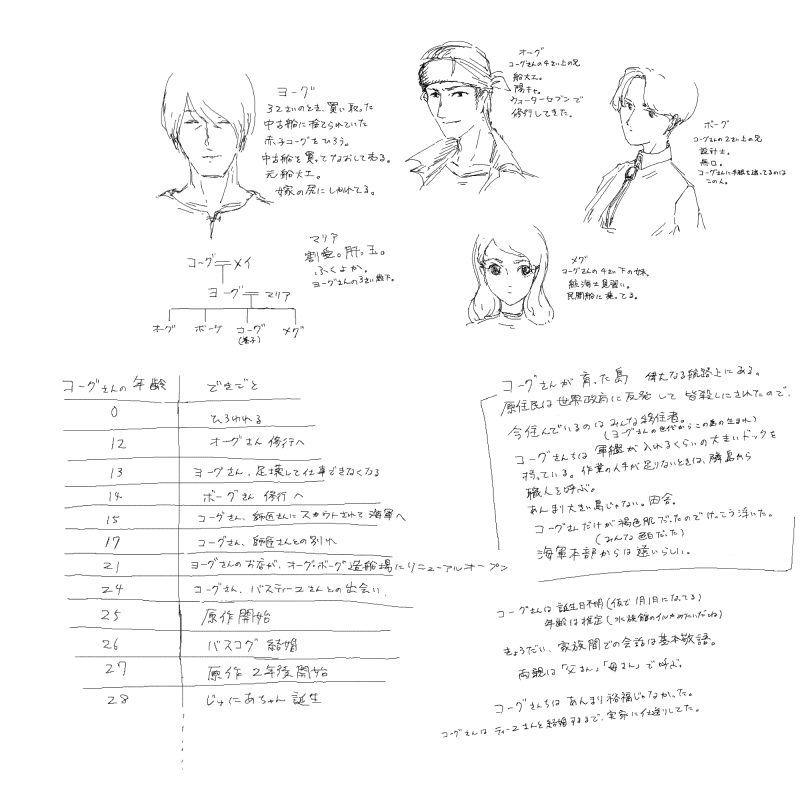 ヨーグ
32さいのとき、買い取った
中古船に捨てられていた
赤子コーグをひろう。
中古船を買ってなおして売る。
元船大工。
嫁の尻にしかれてる。
オーグ
コーグさんの4さい上の兄
船大工。
陽キャ。
ウォーターセブンで
修行してきた。
ボーグ
コーグさんの2さい上の兄
設計士。
無口。
コーグさんに手紙を送ってるのは
この人。
マリア
割愛。肝っ玉。
ふくよか。
ヨーグさんの3さい歳下。
メグ
コーグさんの4さい下の妹。
航海士見習い。
民間船に乗ってる。
コーグ メイ
ヨーグ マリア
オーグ ボーグ コーグ メグ
(養子)
コーグさんの年齢 できごと
0 ひろわれる
12 オーグさん 修行へ
13 ヨーグさん、足壊して仕事できなくなる
14 ボーグさん 修行へ
15 コーグさん、師匠さんにスカウトされて海軍へ
17 コーグさん、師匠さんとの別れ
21 ヨーグさんのお店が、オーグ・ボーグ造船場にリニューアルオープン
24 コーグさん、バスティーユさんとの出会い、
25 原作開始
26 バスコグ 結婚
27 原作 2年後開始
28 じゅにあちゃん 誕生
コーグさんが育った島 偉大なる航路上にある。
原住民は世界政府に反発して皆殺しにされたので、
今住んでいるのはみんな移住者。
(ヨーグさんの世代からこの島の生まれ)
コーグさんちは軍艦が入れるくらいの大きいドックを
持っている。作業の人手が足りないときは、隣島から
職人を呼ぶ。
あんまり大きい島じゃない。田舎。
コーグさんだけが褐色肌だったのでけっこう浮いた。
(みんな色白だった)
海軍本部からは遠いらしい。
コーグさんは誕生日不明(仮で1月1日になってる)
年齢は推定(水族館のイルカみたいだね)
きょうだい、家族間での会話は基本敬語。
両親は「父さん」「母さん」で呼ぶ。
コーグさんちはあんまり裕福じゃなかった。
コーグさんはティーユさんと結婚するまで、実家に仕送りしてた。